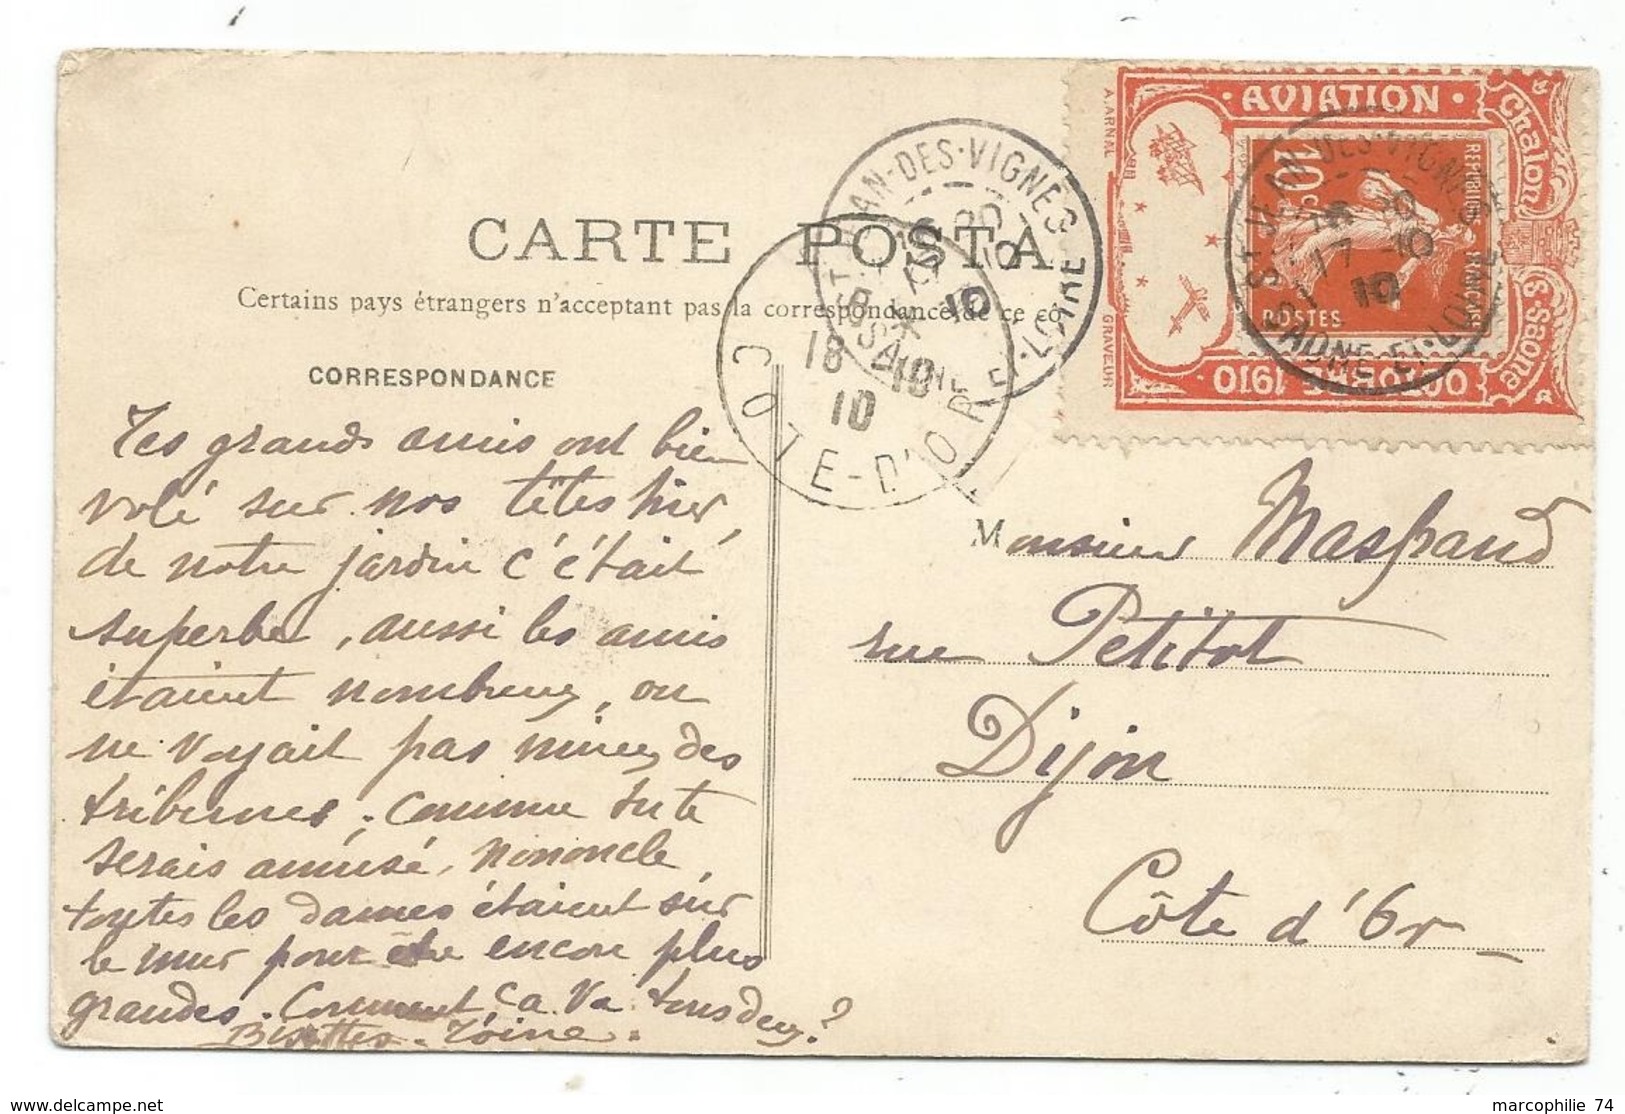 AVIATION
Chalon s/ S-Saône
OCTOBRE 1910
A.ARNAL
GRAVEUR
REPUBLIQUE FRANÇAISE
10c
POSTES
ST JEAN-DES-VIGNES
SAONE-ET-LOIRE
17
10
10
CARTE POSTA
Certains pays étrangers n'acceptent pas la correspondance de ce cô
CORRESPONDANCE
ST JEAN-DES-VIGNES
SAONE-ET-LOIRE
COTE-D'OR
18
10
10
Tes grands amis ont bien
volé sur nos têtes hier,
de notre jardin c'était
superbe, aussi les amis
étaient nombreux, on
ne voyait pas mieux des
tribunes. Comme tu te
serais amusé, nononcle
toutes les dames étaient sur
le mur pour être encore plus
grandes. Comment ça va tous deux?
Bisettes. Toine.
Monsieur Maspand
rue Petitot
Dijon
Côte d'Or
marcophilie 74